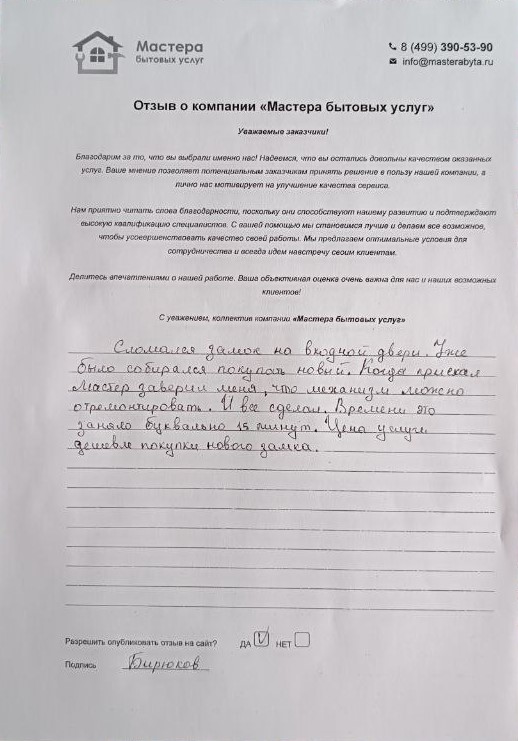 Мастера
бытовых услуг
8 (499) 390-53-90
info@masterabyta.ru
Отзыв о компании «Мастера бытовых услуг»
Уважаемые заказчики!
Благодарим за то, что вы выбрали именно нас! Надеемся, что вы остались довольны качеством оказанных
услуг. Ваше мнение позволяет потенциальным заказчикам принять решение в пользу нашей компании, а
лично нас мотивирует на улучшение качества сервиса.
Нам приятно читать слова благодарности, поскольку они способствуют нашему развитию и подтверждают
высокую квалификацию специалистов. С вашей помощью мы становимся лучше и делаем все возможное,
чтобы усовершенствовать качество своей работы. Мы предлагаем оптимальные условия для
сотрудничества и всегда идем навстречу своим клиентам.
Делитесь впечатлениями о нашей работе. Ваша объективная оценка очень важна для нас и наших возможных
клиентов!
С уважением, коллектив компании «Мастера бытовых услуг»
Сломался замок на входной двери. Уже
было собирался покупать новый. Когда приехал
мастер заверил меня, что механизм можно
отремонтировать. И все сделал. Времени это
заняло буквально 15 минут. Цена услуги
дешевле покупки нового замка.
Разрешить опубликовать отзыв на сайт? ДА V НЕТ
Подпись Бирюков